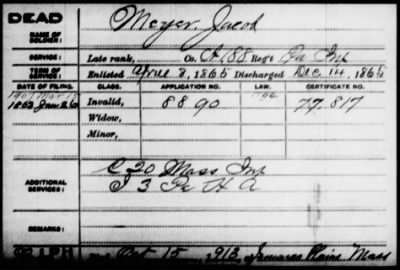 DEAD
NAME OF SOLDIER: Meyer, Jacob
SERVICE: Late rank, Co. 88 Reg't Pa Inf
TERM OF SERVICE: Enlisted April 8, 1865 Discharged Dec. 14, 1865
DATE OF FILING. CLASS. APPLICATION NO. LAW. CERTIFICATE NO.
1863 Jan 26 Invalid, 8890 77,817
Widow,
Minor,
C 20 Mass Inf
ADDITIONAL SERVICES: I 3 Pa H A
REMARKS:
Oct 15 1913, Jamaica Plains Mass